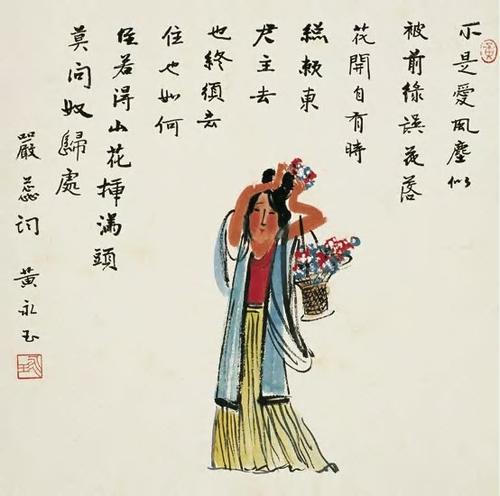 不是愛風塵似
被前緣誤花落
花開自有時
總賴東
君主去
也終須去
住也如何
住若得山花插滿頭
莫問奴歸處
嚴蕊詞 黃永玉